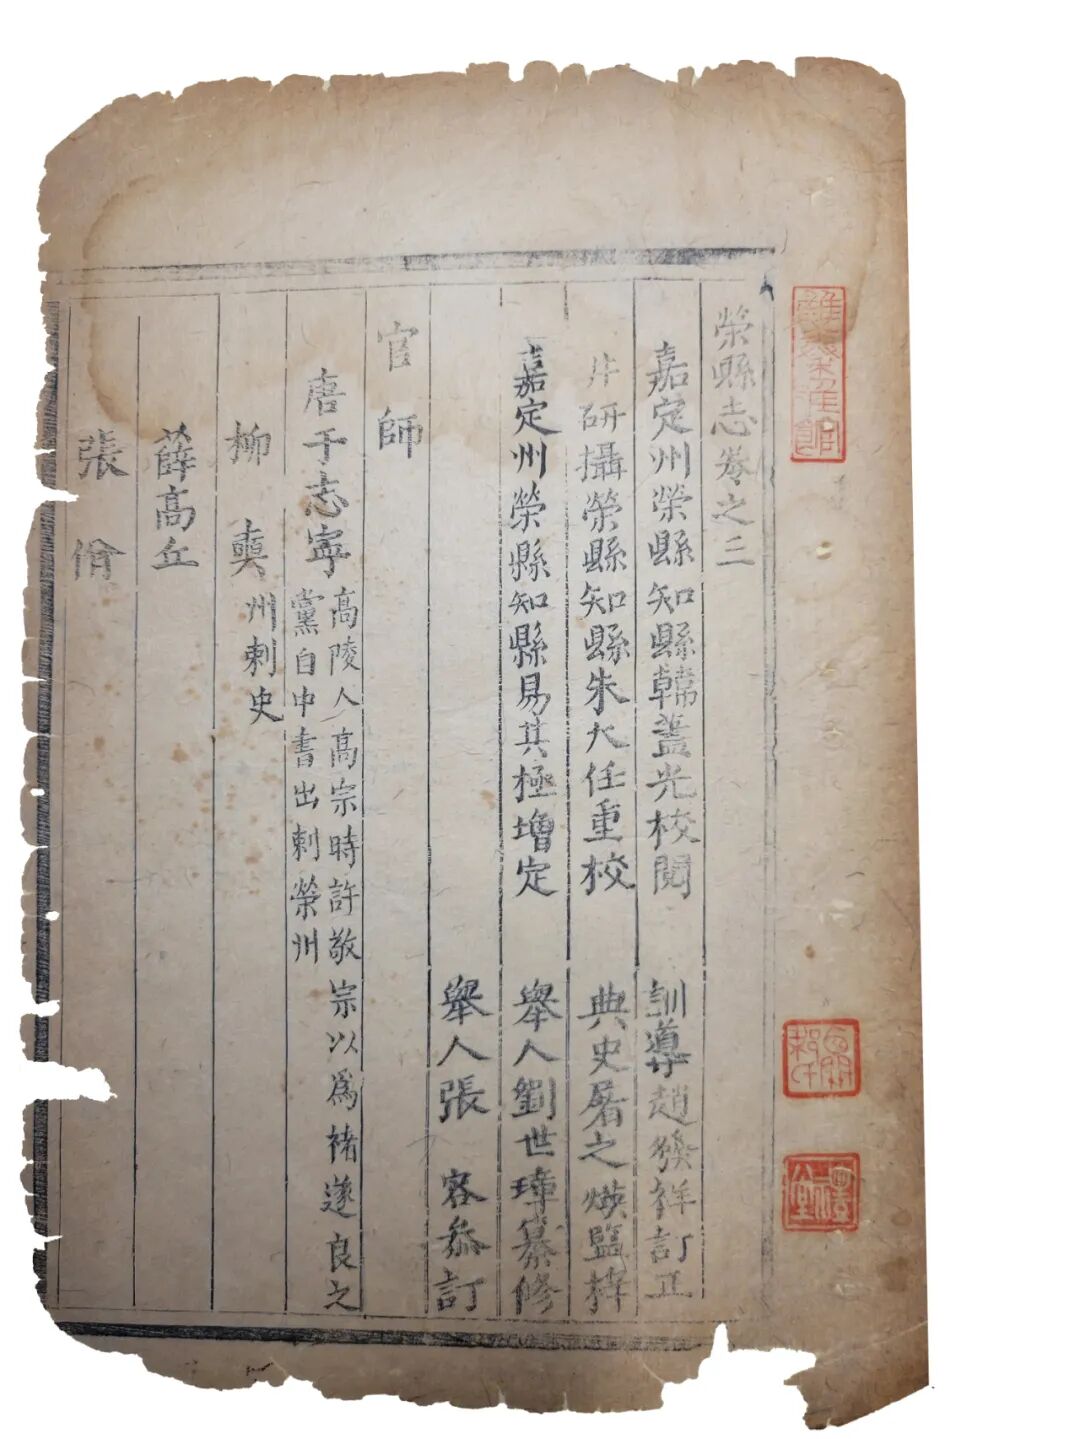 榮縣志卷之三
嘉定州榮縣知縣韓蓋光校閱 訓導趙發祥訂正
井研攝榮縣知縣朱大任重校 典史屠之煐監梓
嘉定州榮縣知縣易其極增定 舉人劉世瑋纂修
舉人張 客叅訂
官師
唐于志寧 高陵人高宗時許敬宗以爲褚遂良之
黨自中書出刺榮州
柳 奭 州刺史
薛高丘
張 偷